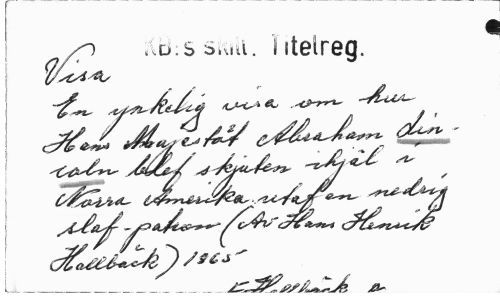 KB:s skill. Titelreg.
Visa
En ynkelig visa om hur
Hans Majestät Abraham Lin-
coln blef skjuten ihjäl i
Norra Amerika utaf en nedrig
slaf-pahon (Av Hans Henrik
Hallbäck) 1865
F. Hallbäck